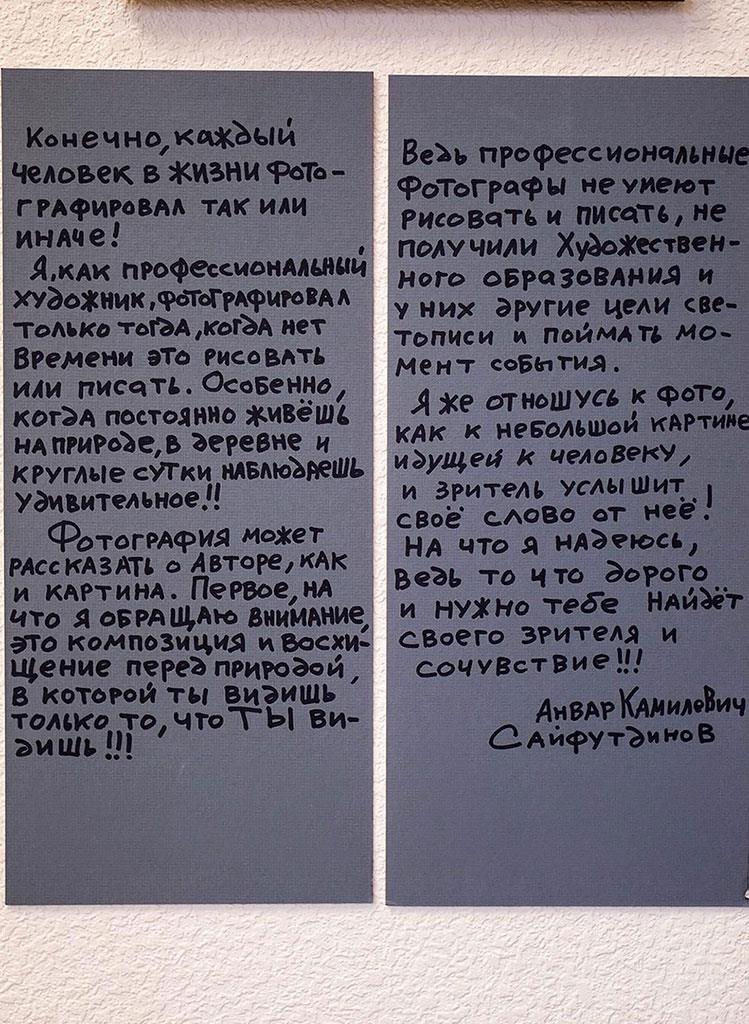 Конечно, каждый
человек в жизни фото-
графировал так или
иначе!
Я, как профессиональный
художник, фотографировал
только тогда, когда нет
времени это рисовать
или писать. Особенно,
когда постоянно живёшь
на природе, в деревне и
круглые сутки наблюдаешь
удивительное!!
Фотография может
рассказать о Авторе, как
и картина. Первое, на
что я обращаю внимание,
это композиция и восхи-
щение перед природой,
в которой ты видишь
только то, что ТЫ ви-
дишь!!!
Ведь профессиональные
фотографы не умеют
рисовать и писать, не
получили Художествен-
ного образования и
у них другие цели све-
тописи и поймать мо-
мент события.
Я же отношусь к фото,
как к небольшой картине
идущей к человеку,
и зритель услышит
своё слово от неё!
На что я надеюсь,
ведь то что дорого
и нужно тебе найдёт
своего зрителя и
сочувствие!!!
Анвар Камилевич
Сайфутдинов